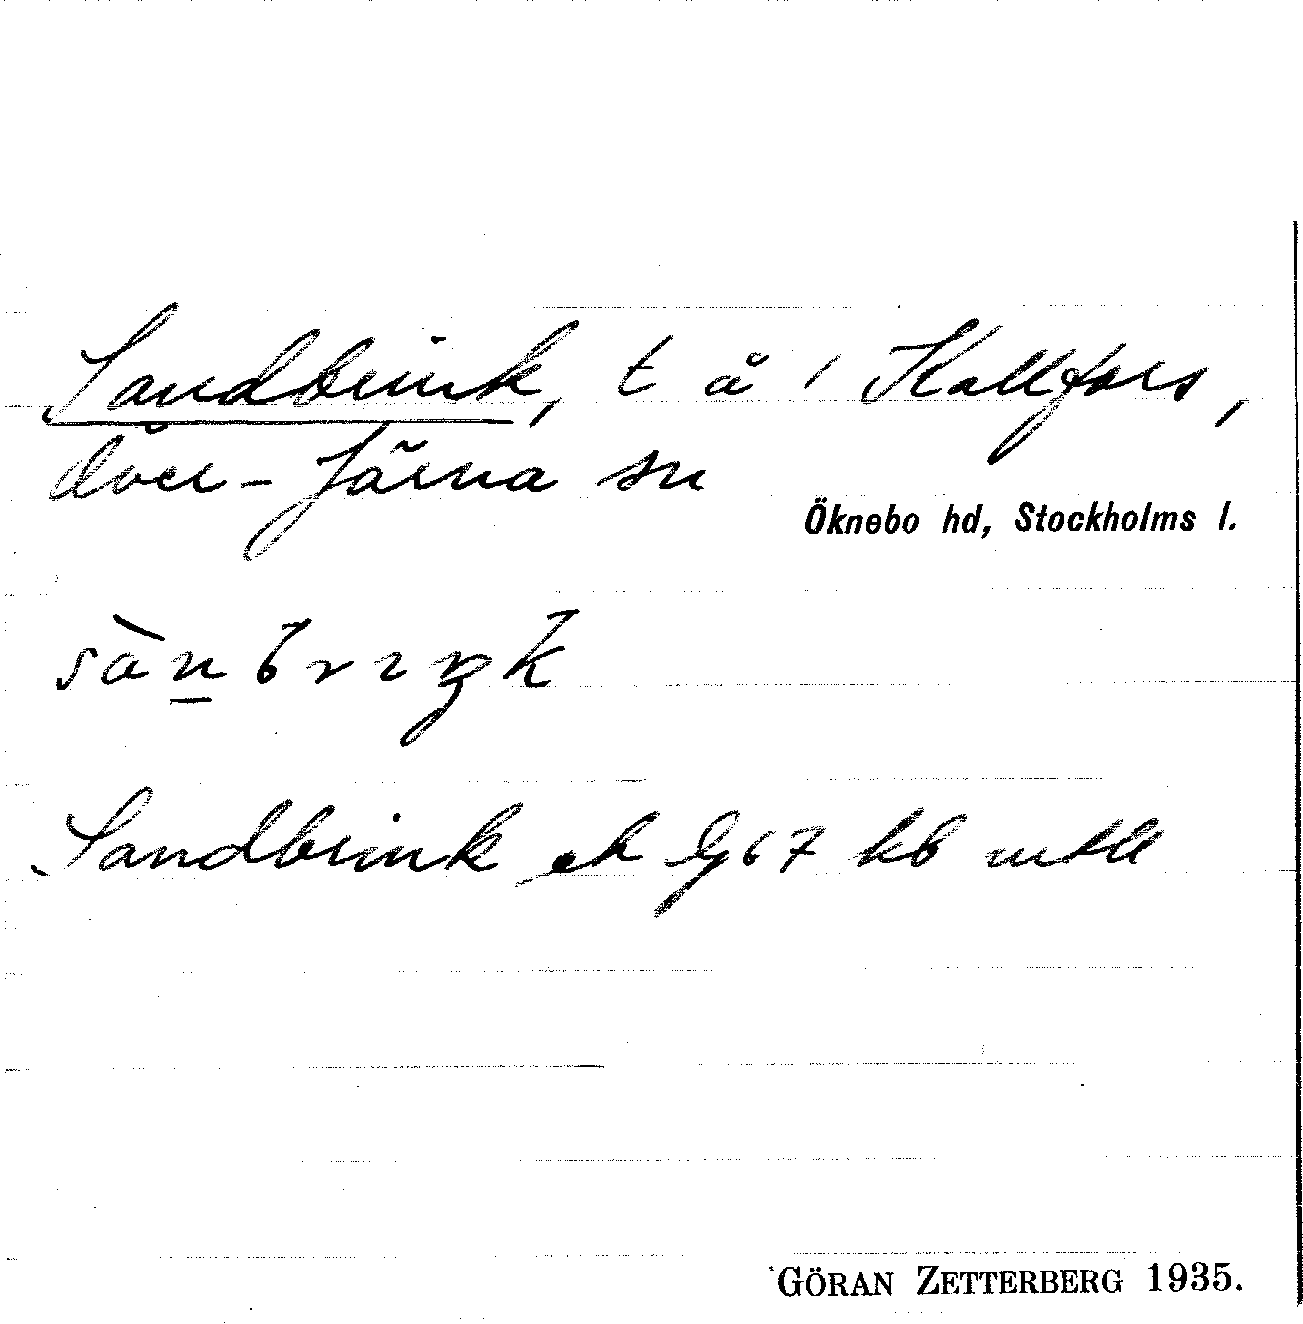 Sandbrink, t å i Kallfors,
Över-Järna sn
Öknebo hd, Stockholms l.
Sandbrink ek
GÖRAN ZETTERBERG 1935.